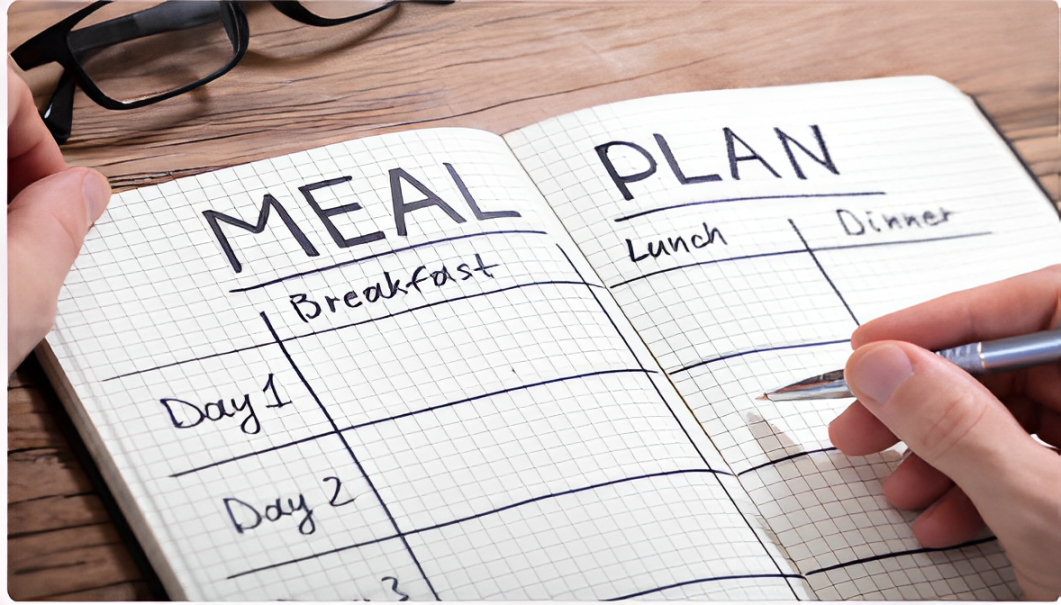 MEAL PLAN
Breakfast Lunch Dinner
Day 1
Day 2
3